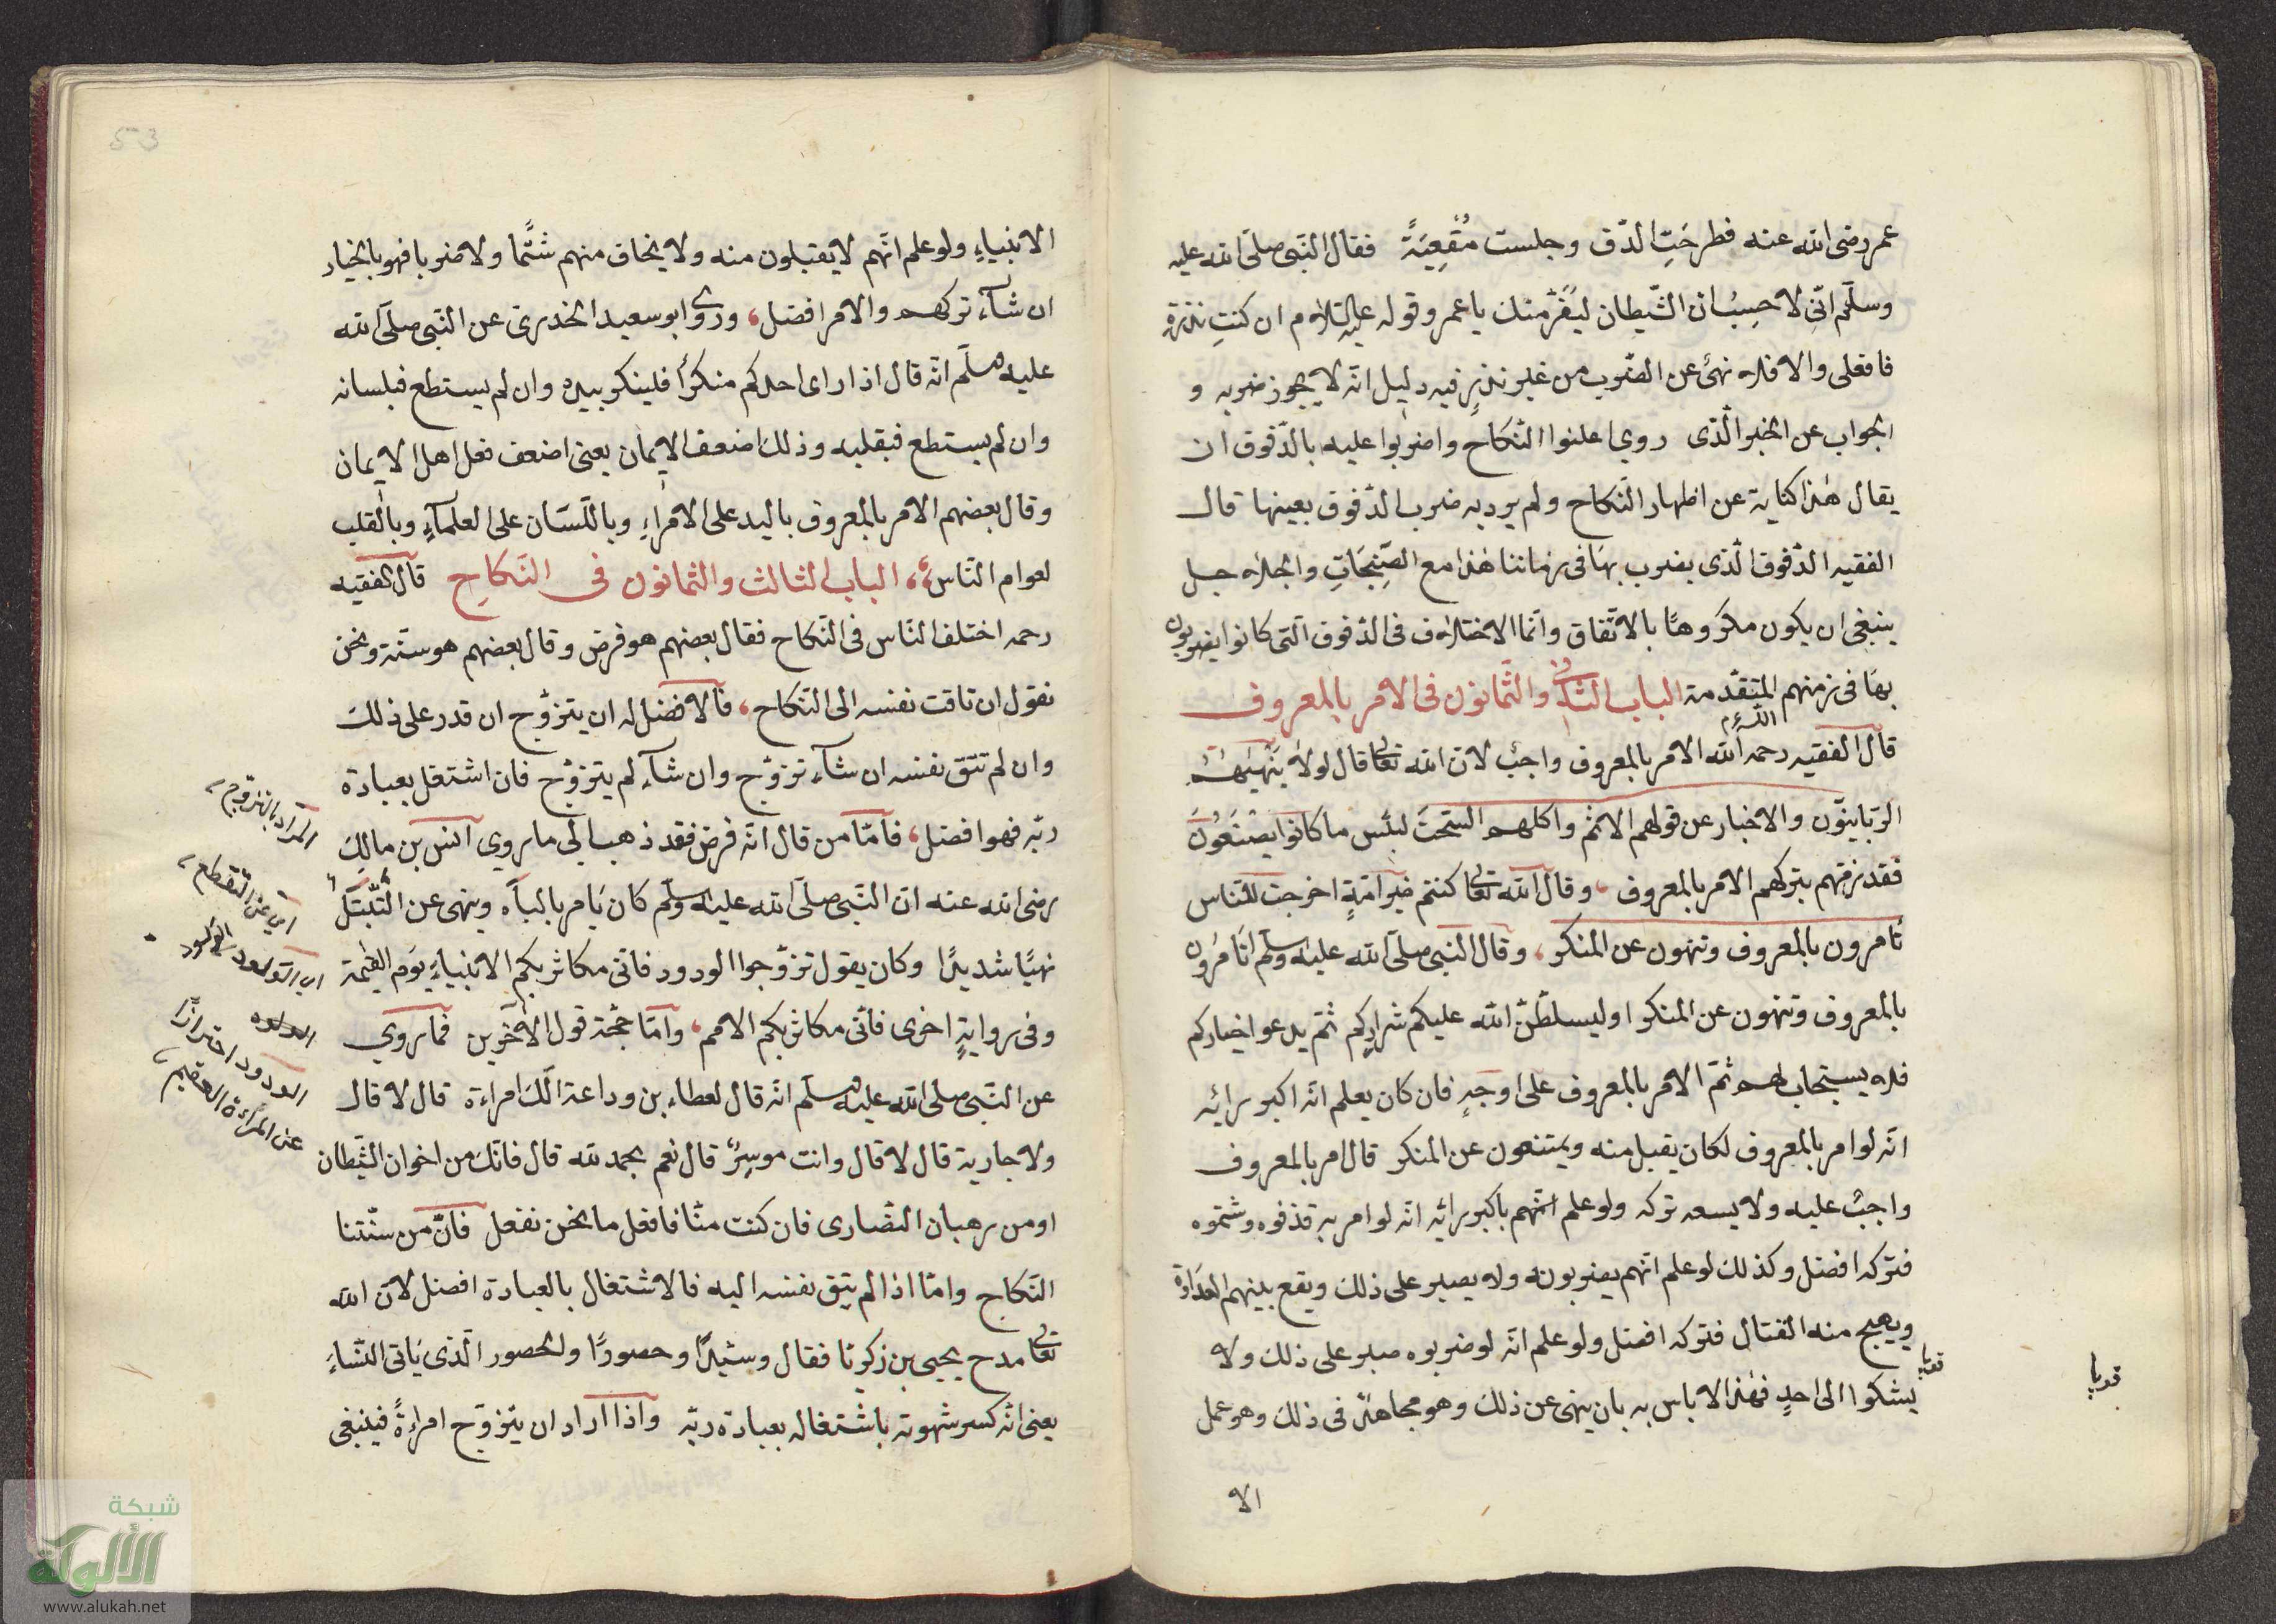 عمر رضى الله عنه فطرحَتِ الدّف وجلست مُقْعِيَةً فقال النّبى صلّى الله عليه
وسلّم انّى لاحسِبُ ان الشّيطان ليَفَرّ منك يا عمر وقوله عليه السّلام ان كنتِ نذرتِ
فافعلى والا فلا نهىٌ عن الضّرب من غير نذرٍ فيه دليل انّه لا يجوز ضربه و
الجواب عن الخبر الّذى روي اعلنوا النّكاح واضربوا عليه بالدّفوف ان
يقال هٰذا كناية عن اظهار النّكاح ولم يرد به ضرب الدّفوف بعينها قال
الفقيه الدّفوف الّذى يضرب بهَا فى زماننا هٰذا مع الصّنِجَاتِ والجلاجل
ينبغى ان يكون مكروهًا بالاتّفاق وانّما الاختلاف فى الدّفوف الّتى كانوا يضربون
بهَا فى زمنهم المتقدّمة الباب الثّانى والثّمانون فى الامر بالمعروف
قال الفقيه رحمه الله الامر بالمعروف واجبٌ لانّ الله تعالى قال لولا يَنْهٰيهُمُ
الرّبّانيّون والاحبار عن قولهم الاثم واكلهم السّحتَ لبئس ما كانوا يصْنَعُونَ
فقد ذمّهم بتركهم الامر بالمعروف، وقال الله تعالى كنتم خير امّةٍ اخرجت للنّاس
تأمرون بالمعروف وتنهون عن المنكر، وقال النّبى صلّى الله عليه وسلّم اتَأمُرُون
بالمعروف وتنهون عن المنكر او ليسلّطنّ الله عليكم شراركم ثمّ يدعوا خياركم
فلا يستجاب لهم ثمّ الامر بالمعروف على اوجهٍ فان كان يعلم انّه اكبر رائه
انّه لو امر بالمعروف لكان يقبل منه ويمتنعون عن المنكر قال امر بالمعروف
واجبٌ عليه ولا يسعه تركه ولو علم انّهم باكبر رائه انّه لو امر به قذفوه وشتموه
فتركه افضل وكذلك لو علم انّهم يضربونه ولا يصبر على ذلك ويقع بينهم العدَاوة
ويهيج منه القتال فتركه افضل ولو علم انّه لو ضربوه صبر على ذلك ولا
يشكوا الى احدٍ فهٰذا لا باس به بان ينهى عن ذلك وهو مجاهدٌ فى ذلك وهو عمل
الا
53
الانبياءِ ولو علم انّهم لا يقبلون منه ولا يخاف منهم شتّمًا ولا ضربا فهو بالخيار
ان شآء تركهم والامر افضل، وروى ابو سعيد الخدرى عن النّبى صلّى الله
عليه وسلّم انّه قال اذا راى احدكم منكرًا فلينكر بيده وان لم يستطع فبلسانه
وان لم يستطع فبقلبه وذلك اضعف الايمان يعنى اضعف فعل اهل الايمان
وقال بعضهم الامر بالمعروف باليد على الامراءِ وباللّسَان على العلمآءِ وبالقلب
لعوام النّاس، الباب الثالث والثمانون فى النّكاحِ قال الفقيه
رحمه اختلف النّاس فى النّكاح فقال بعضهم هو فرض وقال بعضهم هو سنّة ونحن
نقول ان تاقت نفسه الى النّكاح، فالافضل له ان يتزوّج ان قدر على ذلك
وان لم تتق نفسه ان شآء تزوّج وان شآء لم يتزوّج فان اشتغل بعبادة
ربّه فهو افضل، فامّا من قال انّه فرض فقد ذهب الى ما روي انس بن مالكٍ
رضى الله عنه انّ النّبى صلّى الله عليه وسلّم كان يَامر بالبآه وينهى عن التّبتّل
نهيًا شديدًا وكان يقول تزوّجوا الودود فانّى مكاثر بكم الانبياءَ يَوم القيٰمة
وفى روايةٍ اخرى فانّى مكاثر بكم الامم، وامّا حجّة قول الآخرين فما روي
عن النّبى صلّى الله عليه وسلّم انّه قال لعطاء بن وداعة الَكَ امراءة قال لا قال
ولا جارية قال لا قال وانت موسِرٌ قال نعم بحمد لله قال فانّك من اخوان الشّيطان
او من رهبان النصّارى فان كنت منّا فافعل ما نحن نفعل فانّ من سنّتنا
النّكاح وامّا اذا لم يتق نفسه اليه فالاشتغال بالعبادة افضل لانّ الله
تعالى مدح يحيى بن زكريّا فقال وسيّدًا وحصورًا والحصور الّذى يَاتى النّسَاءِ
يعنى انّه كسر شهوته باشتغاله بعبادة ربّه واذا اراد ان يتزوّج امراءةً فينبغى
المراد بالتزوج
اى عن التّقطع
اى التولود
الودود احترازًا
عن المرَاءة العقيم
شبكة
الألوكة
www.alukah.net